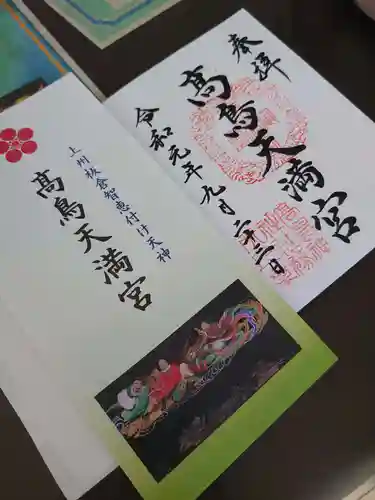 奉拝
高鳥天満宮
令和元年九月二十二日
上州板倉智恵付け天神
高鳥天満宮